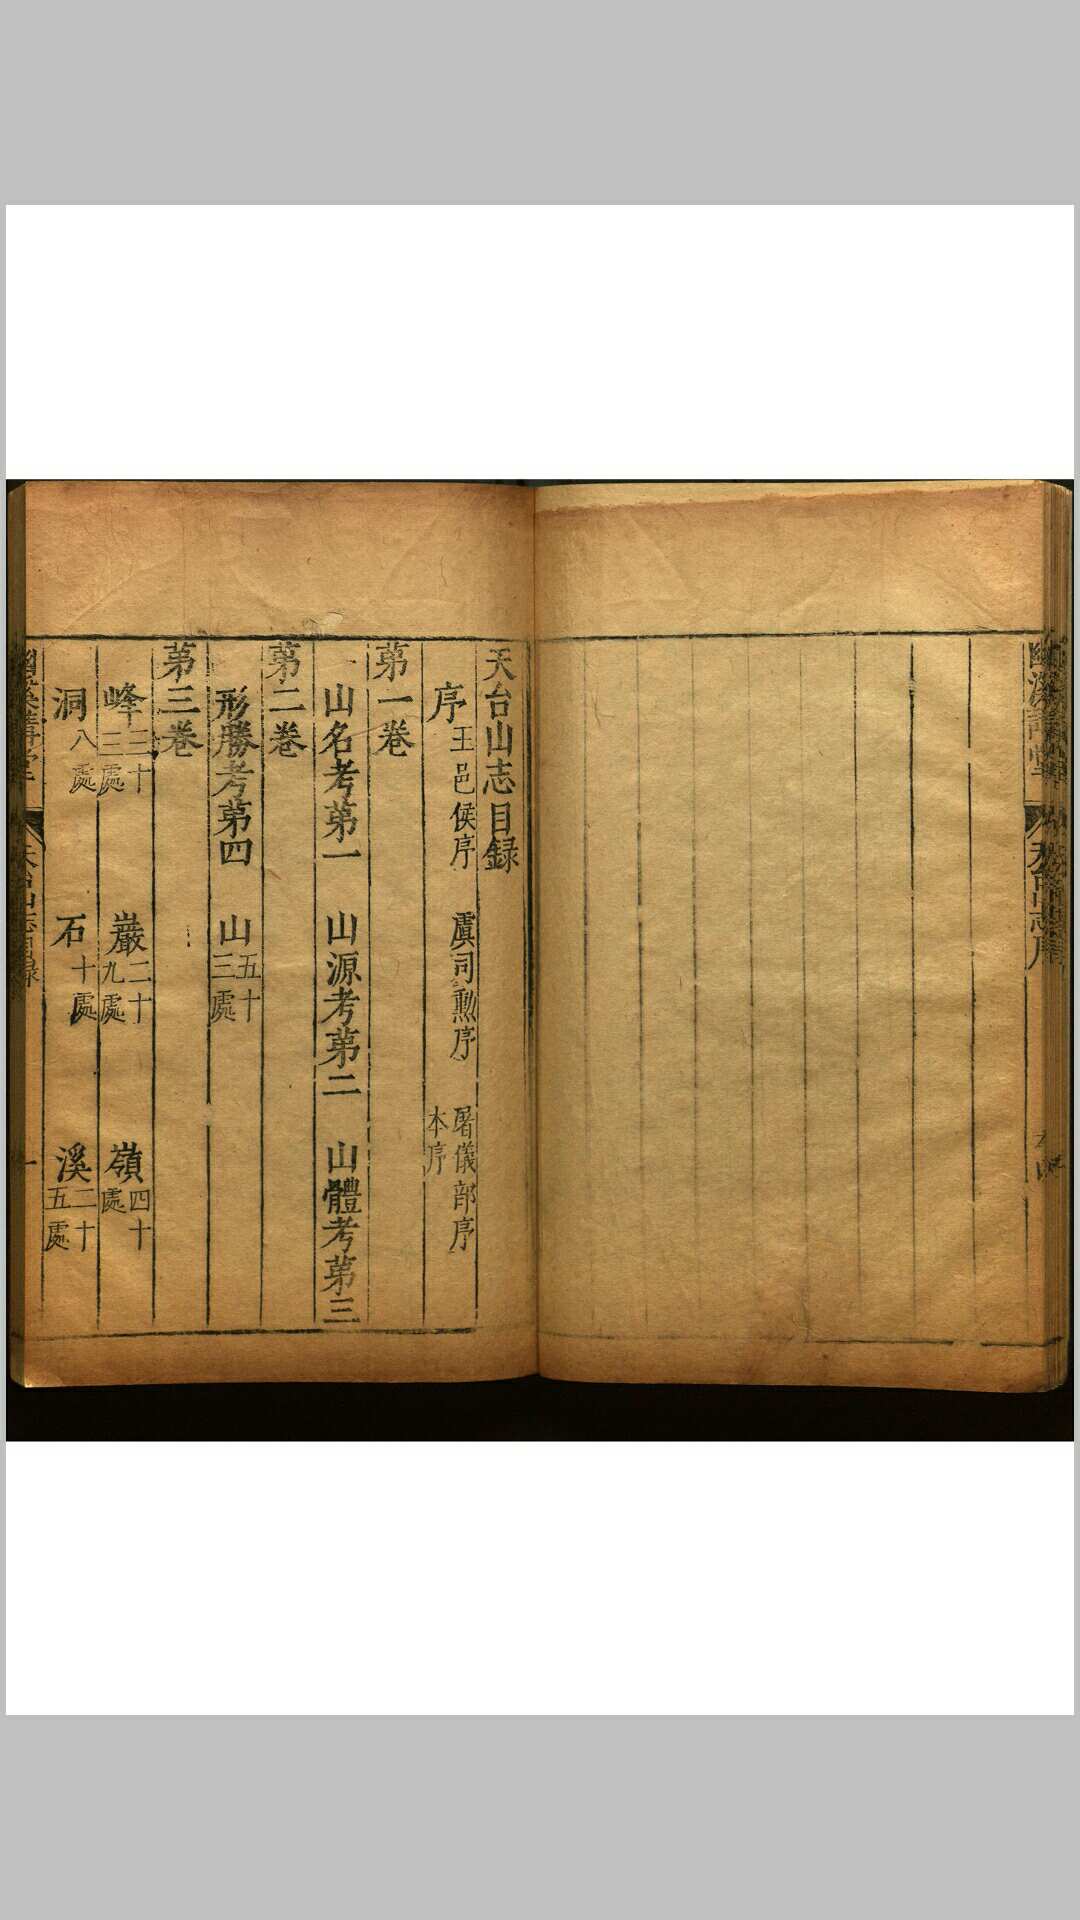 天台山志目録
序 王邑侯序 虞司勲序 屠儀部序 本序
第一巻
山名考第一 山源考第二 山體考第三
第二巻
形勝考第四 山 五十三處
第三巻
峰 三十三處 巖 二十九處 嶺 四十處
洞 八處 石 十處 溪 二十五處
天台山志目録 一